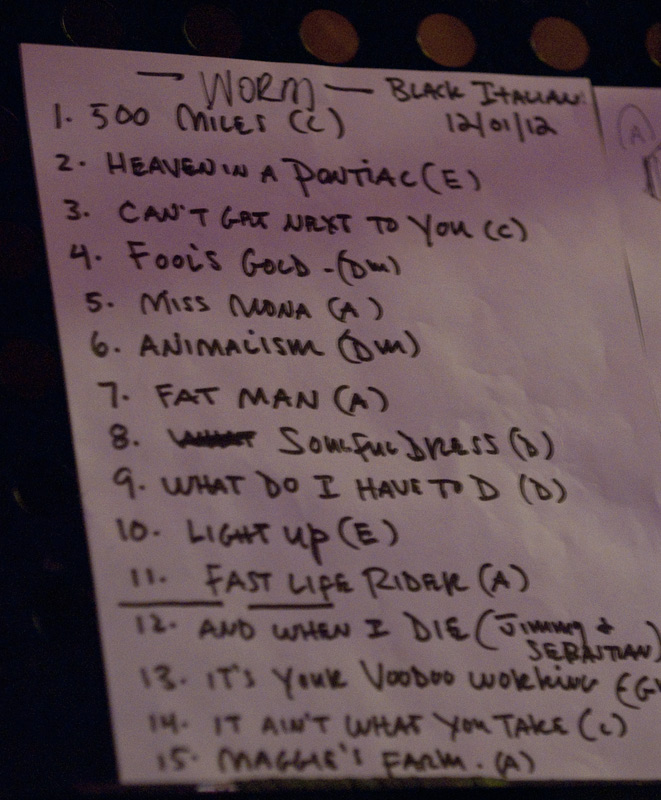 — WORM — BLACK ITALIAN:
12/01/12
1. 500 MILES (C)
2. HEAVEN IN A PONTIAC (E)
3. CAN'T GET NEXT TO YOU (C)
4. FOOL'S GOLD - (Dm)
5. MISS MONA (A)
6. ANIMALISM (Dm)
7. FAT MAN (A)
8. SOULFUL DRESS (D)
9. WHAT DO I HAVE TO D (D)
10. LIGHT UP (E)
11. FAST LIFE RIDER (A)
12. AND WHEN I DIE (JIMMY +
SEBASTIAN)
13. IT'S YOUR VOODOO WORKING
14. IT AIN'T WHAT YOU TAKE (C)
15. MAGGIE'S FARM. (A)
(A)